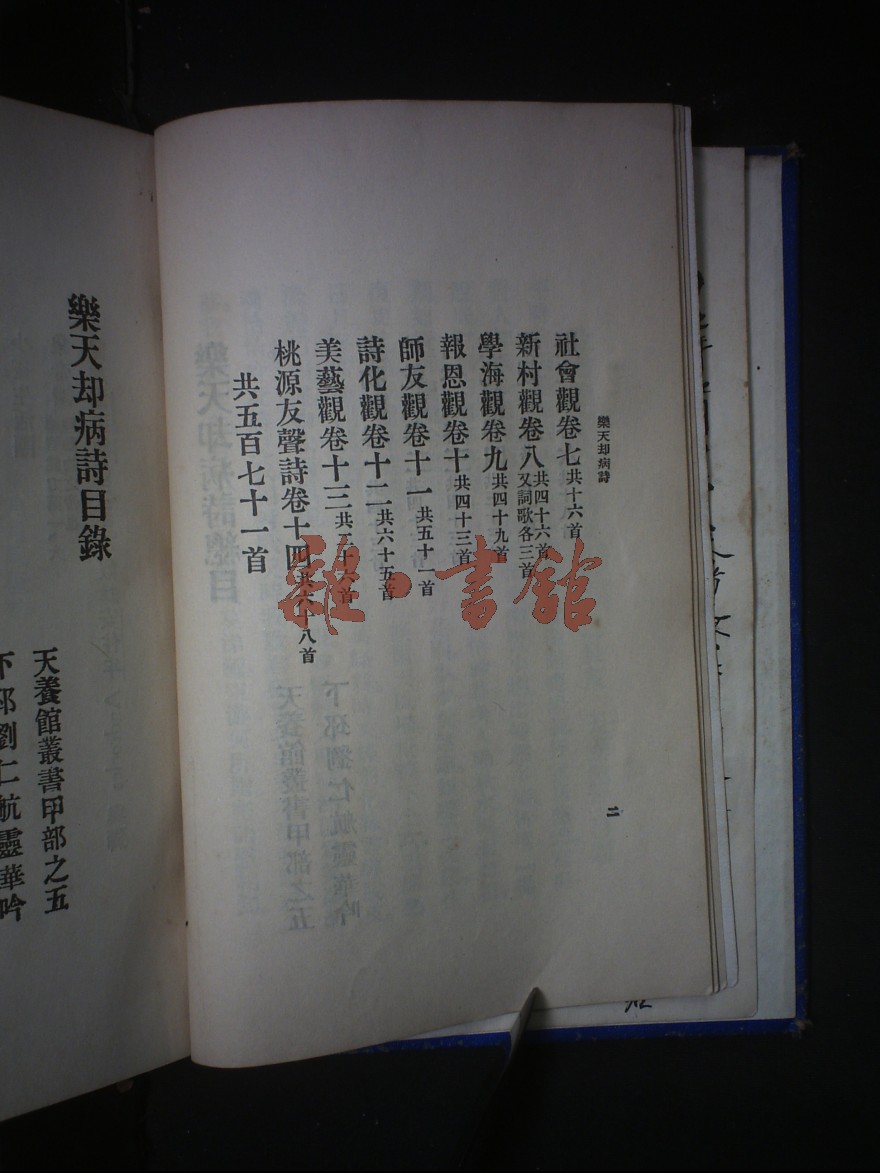 樂天却病詩
社會觀卷七共十六首
新村觀卷八共四十六首又詞歌各三首
學海觀卷九共四十九首
報恩觀卷十共四十三首
師友觀卷十一共五十一首
詩化觀卷十二共六十五首
美藝觀卷十三共二十首
桃源友聲詩卷十四共六十八首
共五百七十一首
二
樂天却病詩目錄
天養館叢書甲部之五
下邳劉仁航靈華吟
雜·書館